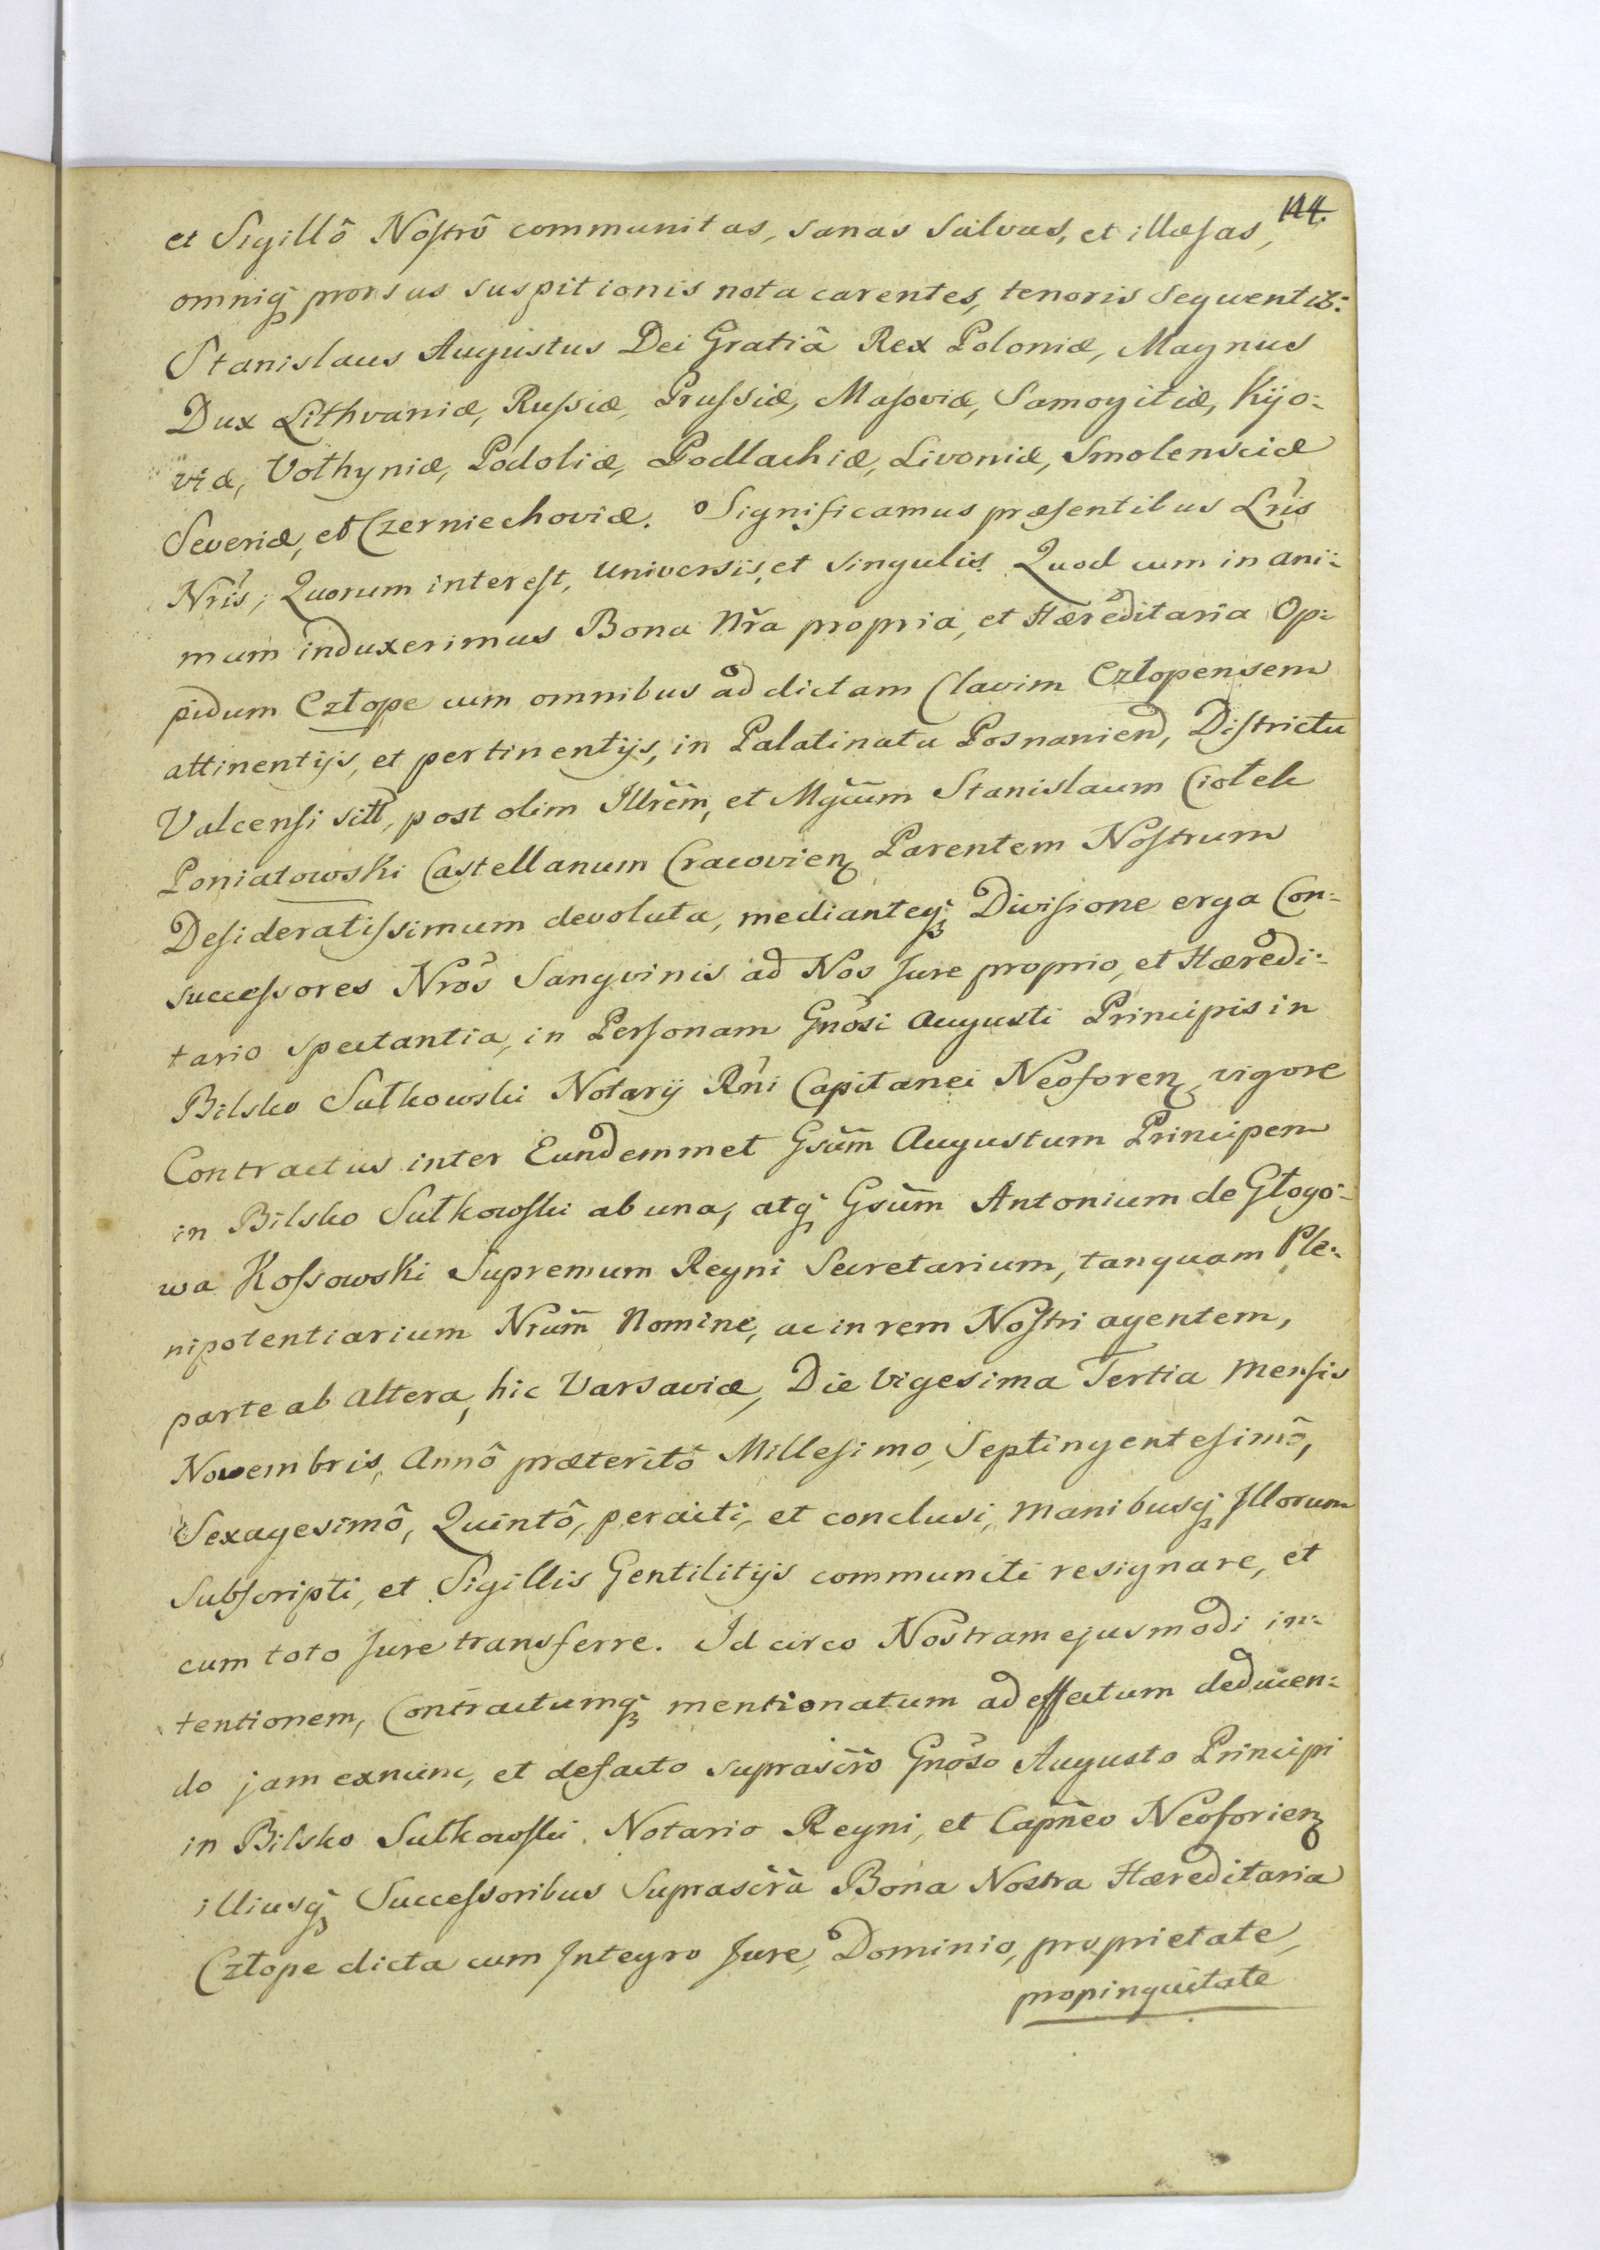 114.
et Sigillô Noſtrô communitas, sanas salvas, et illæſas,
omniq́ꝫ prorsus suspitionis nota carentes, tenoris sequentis:
Stanislaus Augustus Dei Gratiâ Rex Poloniæ, Magnus
Dux Lithvaniæ, Ruſsiæ, Pruſsiæ, Maſoviæ, Samogitiæ, Kijo:
viæ, Vołhyniæ, Podoliæ, Podlachiæ, Livoniæ, Smolensciæ
Severiæ, et Czerniechoviæ. Significamus præſentibus Lr̃is
Nr̃is, Quorum intereſt, Universis, et singulis. Quod cum in ani:
mum induxerimus Bona Nr̃a propria, et Hæreditaria Op:
pidum Człope cum omnibus ad dictam Clavim Człopensem
attinentijs, et pertinentijs, in Palatinatu Posnanien, Diſtrictu
Valcenſi sitt, post olim Illr̃em, et Mgc̃um Stanislaum Ciołek
Poniatowski Castellanum Cracovien Parentem Noſtrum
Deſideratiſsimum devoluta, medianteq́ꝫ Diviſione erga Con:
succeſsores Nr̃os Sangvinis ad Nos Jure proprio, et Hæredi:
tario spectantia, in Perſonam Gn̄osi Augusti Principis in
Bilsko Sułkowski Notarij Rñi Capitanei Neoforen vigore
Contractus inter Eundemmet Gsũm Augustum Principem
in Bilsko Sułkowſki ab una, atq́ꝫ Gsũm Antonium de Głogo:
wa Koſsowski Supremum Regni Secretarium, tanquam Ple:
nipotentiarium Nrũm Nomine, ac in rem Noſtri agentem,
parte ab altera, hic Varsaviæ, Die Vigesima Tertia Menſis
Novembris, Annô præteritô Milleſimo, Septingenteſimô,
Sexagesimô, Quintô, peracti, et conclusi, Manibusq́ꝫ Illorum
Subſcripti, et Sigillis Gentilitijs communiti resignare, et
cum toto Jure transferre. Id circo Nostram ejusmodi in:
tentionem, Contractumq́ꝫ mentionatum ad effectum deducen:
do jam exnunc, et defacto suprascr̃o Gnoso Augusto Principi
in Bilsko Sułkowſki Notario Regni, et Capñeo Neoforien
illiusq́ꝫ Succeſsoribus Suprascr̃a Bona Nostra Hæreditaria
Człope dicta cum Integro Jure, Dominio, proprietate,
propinquitate